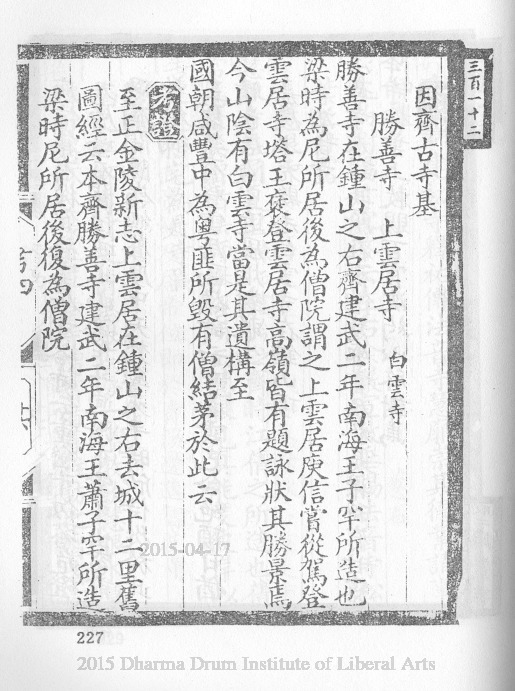 三百一十二
因齊古寺基
勝善寺　上雲居寺　白雲寺
勝善寺在鍾山之右齊建武二年南海王子罕所造也
梁時為尼所居後為僧院謂之上雲居庾信嘗從駕登
雲居寺塔王褒登雲居寺高嶺皆有題詠狀其勝景焉
今山陰有白雲寺當是其遺構至
國朝咸豐中為粵匪所毀有僧結茅於此云
考證
至正金陵新志上雲居在鍾山之右去城十二里舊
圖經云本齊勝善寺建武二年南海王蕭子罕所造
梁時尼所居後復為僧院
2015-04-17
227
2015 Dharma Drum Institute of Liberal Arts